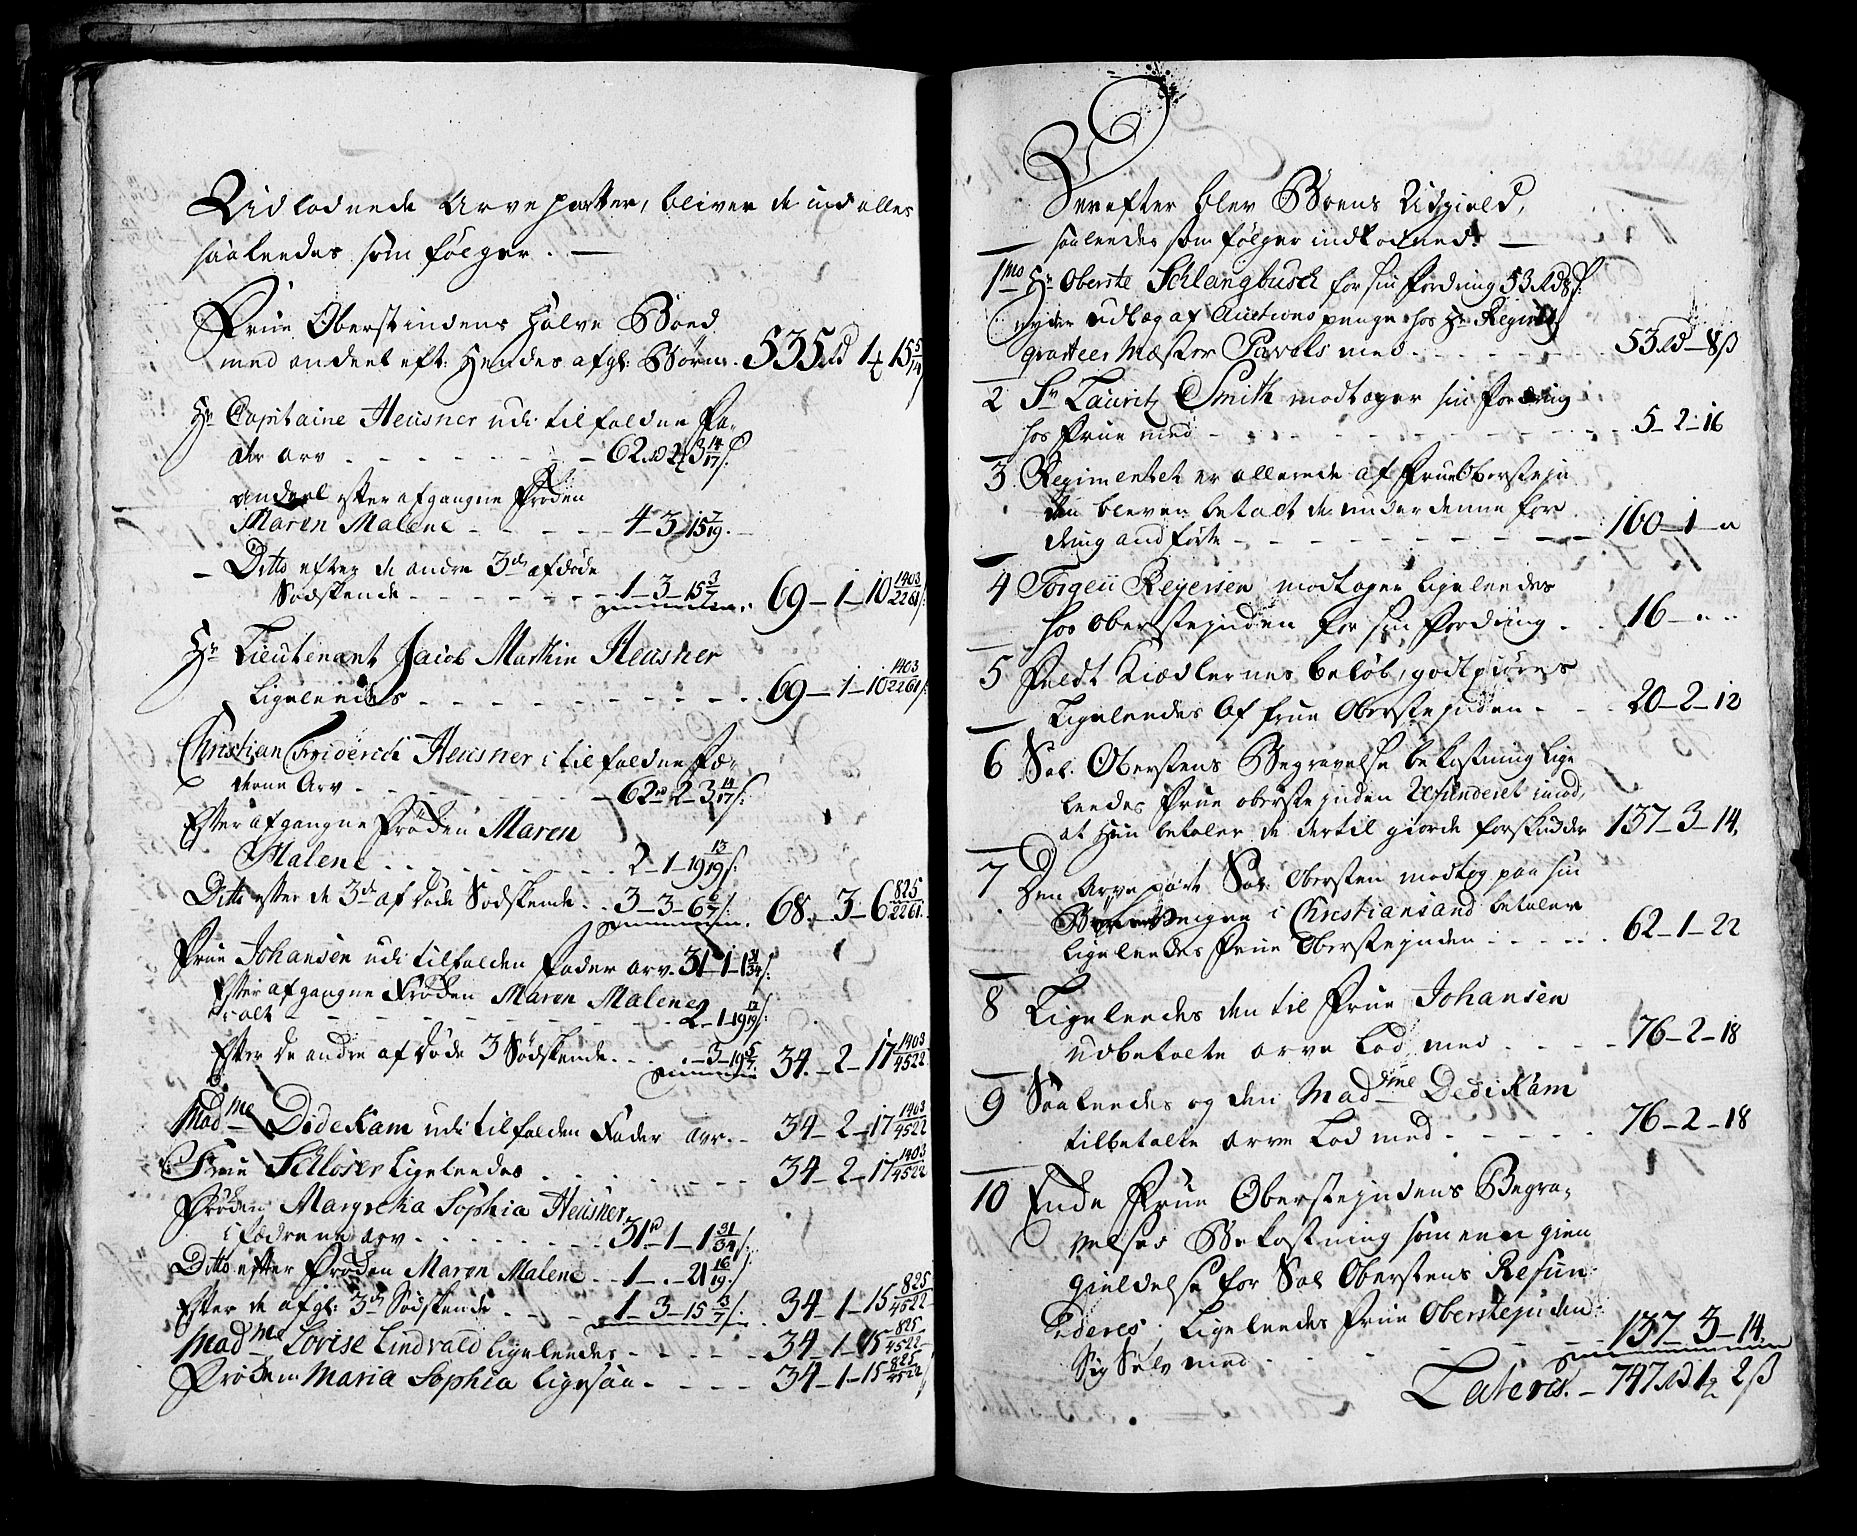 Udlodnede Arve parter, bliver de ind alles
saaleedes som følger. —
Frue Oberstindens Halve Boed
med andeel eft: Hendes afgl: Børn. 535 rd 1 15 5/14
Hr Capitaine Heusner udi tilfaldne Fa-
der arv - - - - 62 rd 2 3 14/17 s:
andeel efter afgangne Frøden
Maren Malene - - - - 4-3-15 7/19.
- Ditto efter de andre 3de afdøde
Sødskende - - - - 1-3-15 3/7 69-1-10 1403/2261 s:
Hr Lieutenant Jacob Marthin Heusner
Ligeleedes - - - - 69-1-10 1403/2261 s:
Christian Friderich Heusner i tilfaldne Fæ-
derne Arv - - - - 62 rd 2-3 14/17 s:
Efter afgangne Frøden Maren
Malene - - - - 2-1-19 13/19 s:
Ditto efter de 3de af Døde Sødskende - - 3-3-6 6/7 s: 68-3-6 825/2261.
Frue Johansen udi tilfalden Fader arv. 31-1-1 31/34 s:
Efter afgangne Frøden Maren Malene
- alt - - - - 2-1-19 13/19 s:
Efter De andre af Døde 3 Sødskende - - - 3-19 5/7. 34-2-17 1403/4522
Madme Didekam udi tilfalden Fader arv. - 34-2-17 1403/4522
Frue Schløser Ligeleedes - - - - 34-2-17 1403/4522
Frøden Margretha Sophia Heusner
i fædrene arv - - - - 31 rd-1-1 31/34 s:
Ditto efter Frøden Maren Malene - - 1-.-21 16/19 s:
Efter de afgl: 3de Sødskende - - - 1-3-15 3/7 s: 34-1-15 825/4522
Madme Lovise Lindvald Ligeleedes - - - - 34-1-15 825/4522
Frøden Maria Sophia Ligesaa - - - - 34-1-15 825/4522
Derefter blev Boens Udgield,
saaleedes som følger indkomned: —
1mo Hr Oberste Schlangbusch for sin Fordring 53 rd 8 s:
nyder udlæg af Auctions penge hos Hr Regiments
qvarteer Mæster Pavels med - - - - 53 rd - 8 ß
2 Sr Lauritz Smith modtager sin Fordring
hos Frue med - - - - 5-2-16
3 Regimentet er allerede af Frue Obersteju
den bleven betalt de under denne for
dring andførte - - - - 160-1-"
4 Torgeii Regersen modtager ligeleedes
hos Oberstejnden for sin Fordring - - 16-"-"
5 Feldt Kiædlernes beløb, godtgiøres
Ligeleedes Af Frue Oberstejnden - - - 20-2-12
6 Sal. Oberstens Begravelse bekostning Lige
leedes Frue oberstejnden Refunderet imod,
at Hun betaler de dertil giorde forskudder 137-3-14,
7 Den Arve part Sal: Obersten modtog paa sin
i Christiansand betaler
Ligeleedes Frue Oberstejnden - - - - 62-1-22
8 Ligeleedes den til Frue Johansen
udbetalte arve Lod med - - - - 76-2-18
9 Saaleedes og den Madme Dedikam
tilbetalte arve Lod med - - - - 76-2-18
10 Ende Frue Oberstejndens Begra-
velses Bekostning som een gien
gieldelse for Sal Oberstens Refun-
deres; Ligeleedes Frue Oberstejnden
Sig Selv med - - - - 137-3-14.
Lateris. - 747 rd 1 2 ß